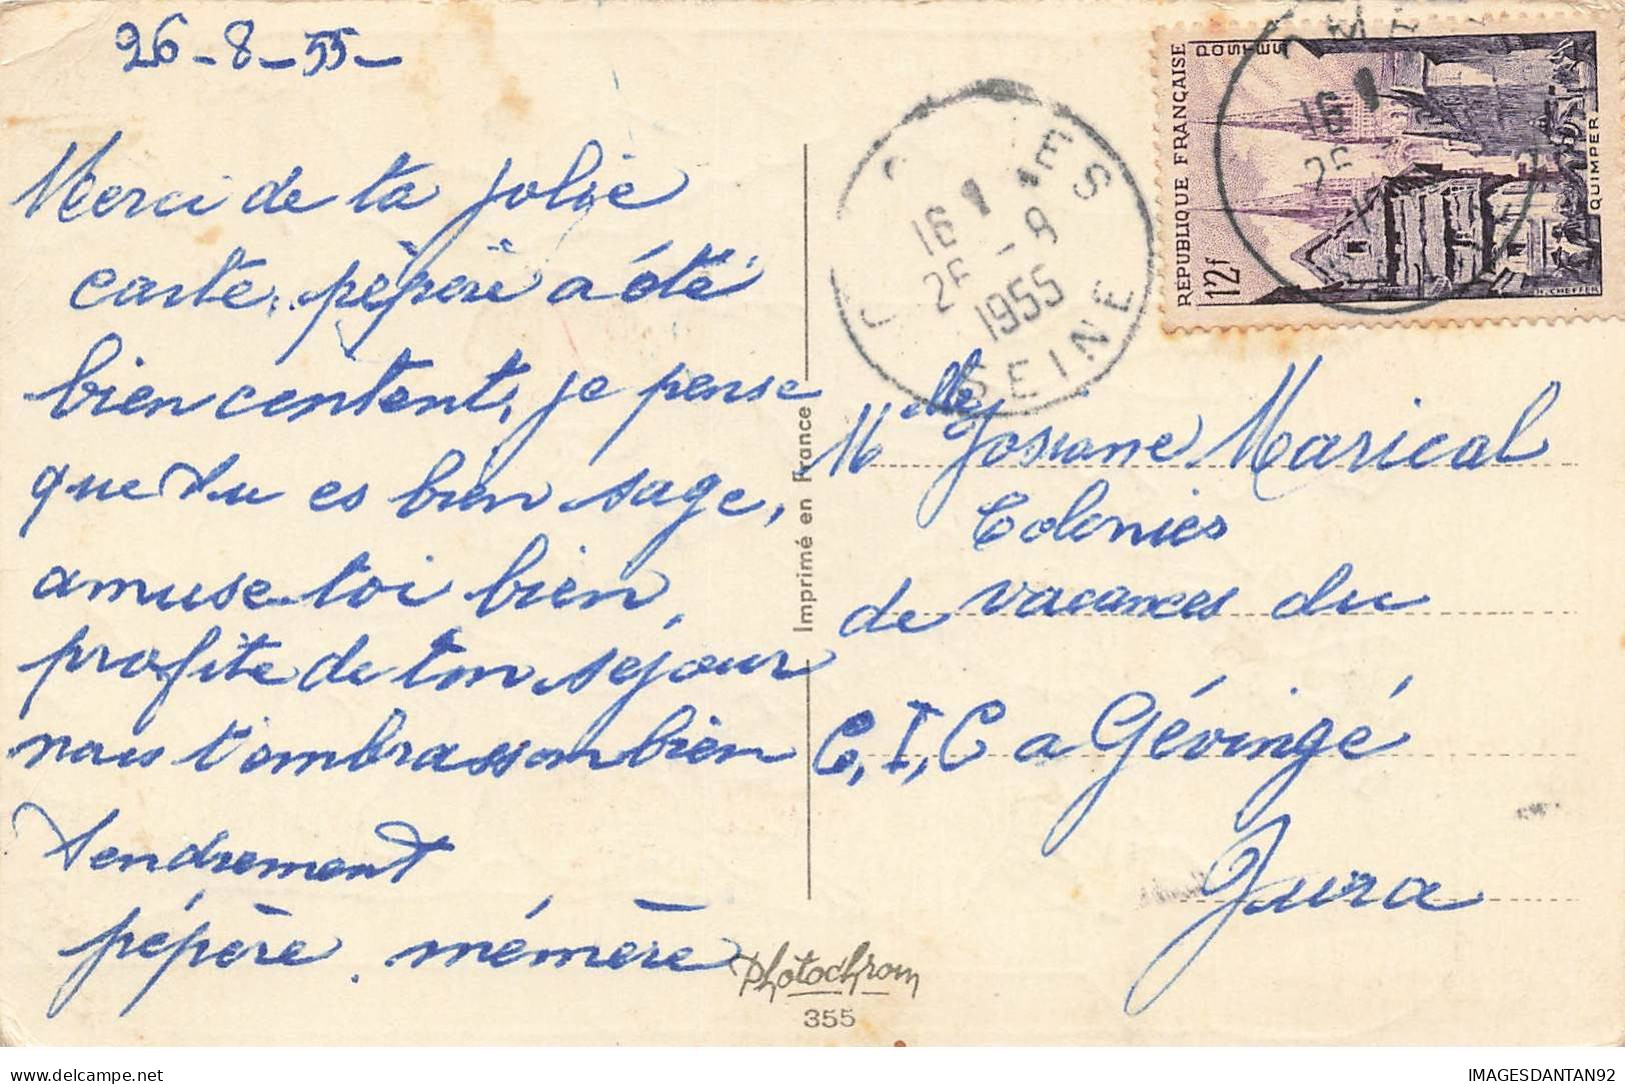 26-8-55-
Merci de ta jolie
carte, pépère a été
bien content, je pense
que tu es bien sage,
amuse-toi bien,
profite de ton séjour
nous t'embrasson bien
tendrement
pépère. mémère
Imprimé en France
Photochrom
355
16
26 - 8
1955
SEINE
REPUBLIQUE FRANÇAISE
POSTES
12f
QUIMPER
H. CHEFFER
16
Mlle Josiane Marical
Colonies
de vacances du
C, I, C a Gévingé
Jura
IMAGESDANTAN92